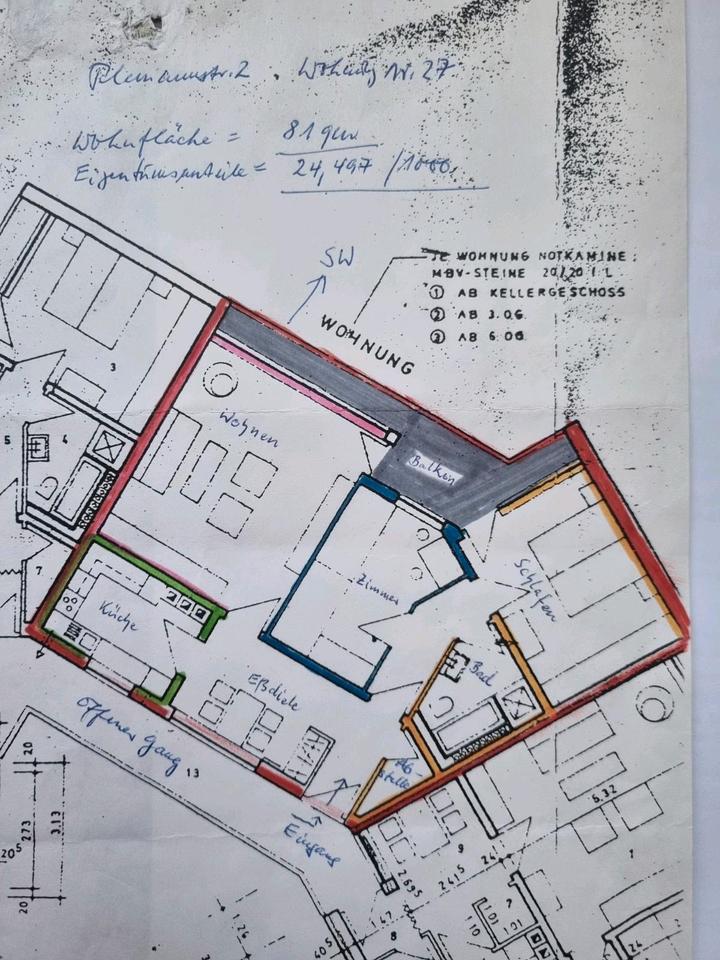 Wohnung Nr. 27
Wohnfläche = 81 qm
Eigentumsanteile = 24,497 /1000
SW
JE WOHNUNG NOTKAMINE:
MBV-STEINE 20/20 I L
① AB KELLERGESCHOSS
② AB 3.OG
③ AB 6.OG
WOHNUNG
3
5
4
7
Wohnen
Balkon
Zimmer
Schlafen
Küche
Eßdiele
Bad
Ab-
stelle
Offener Gang
13
Eingang
20
273
3,13
20⁵
20
6,32
9
1
24
2,69⁵
24,5
7
1,10
1,47
1,26
40⁵
8
24